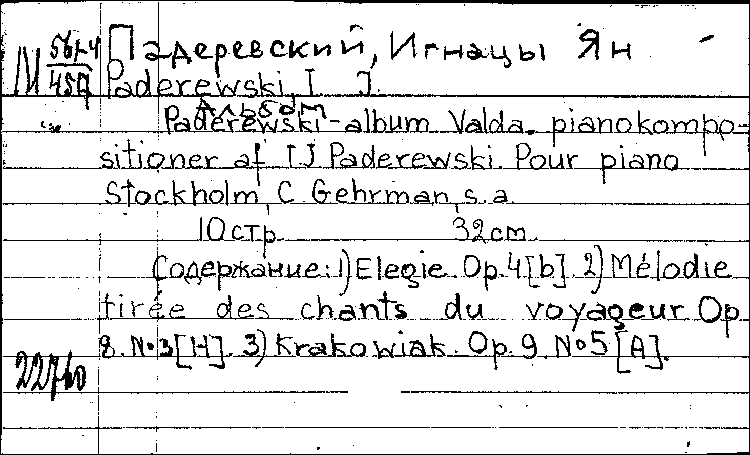 Падеревский, Игнацы Ян
М 450 Paderewski, I J.
Альбом
Paderewski-album Valda. pianokompo-
sitioner af IJ Paderewski. Pour piano
Stockholm, C. Gehrman, s.a.
10стр. 32cm.
Содержание: 1) Elegie. Op. 4[b]. 2) Mélodie
tirée des chants du voyageur Op.
8. No3[H]. 3) Krakowiak. Op. 9. No5 [A].